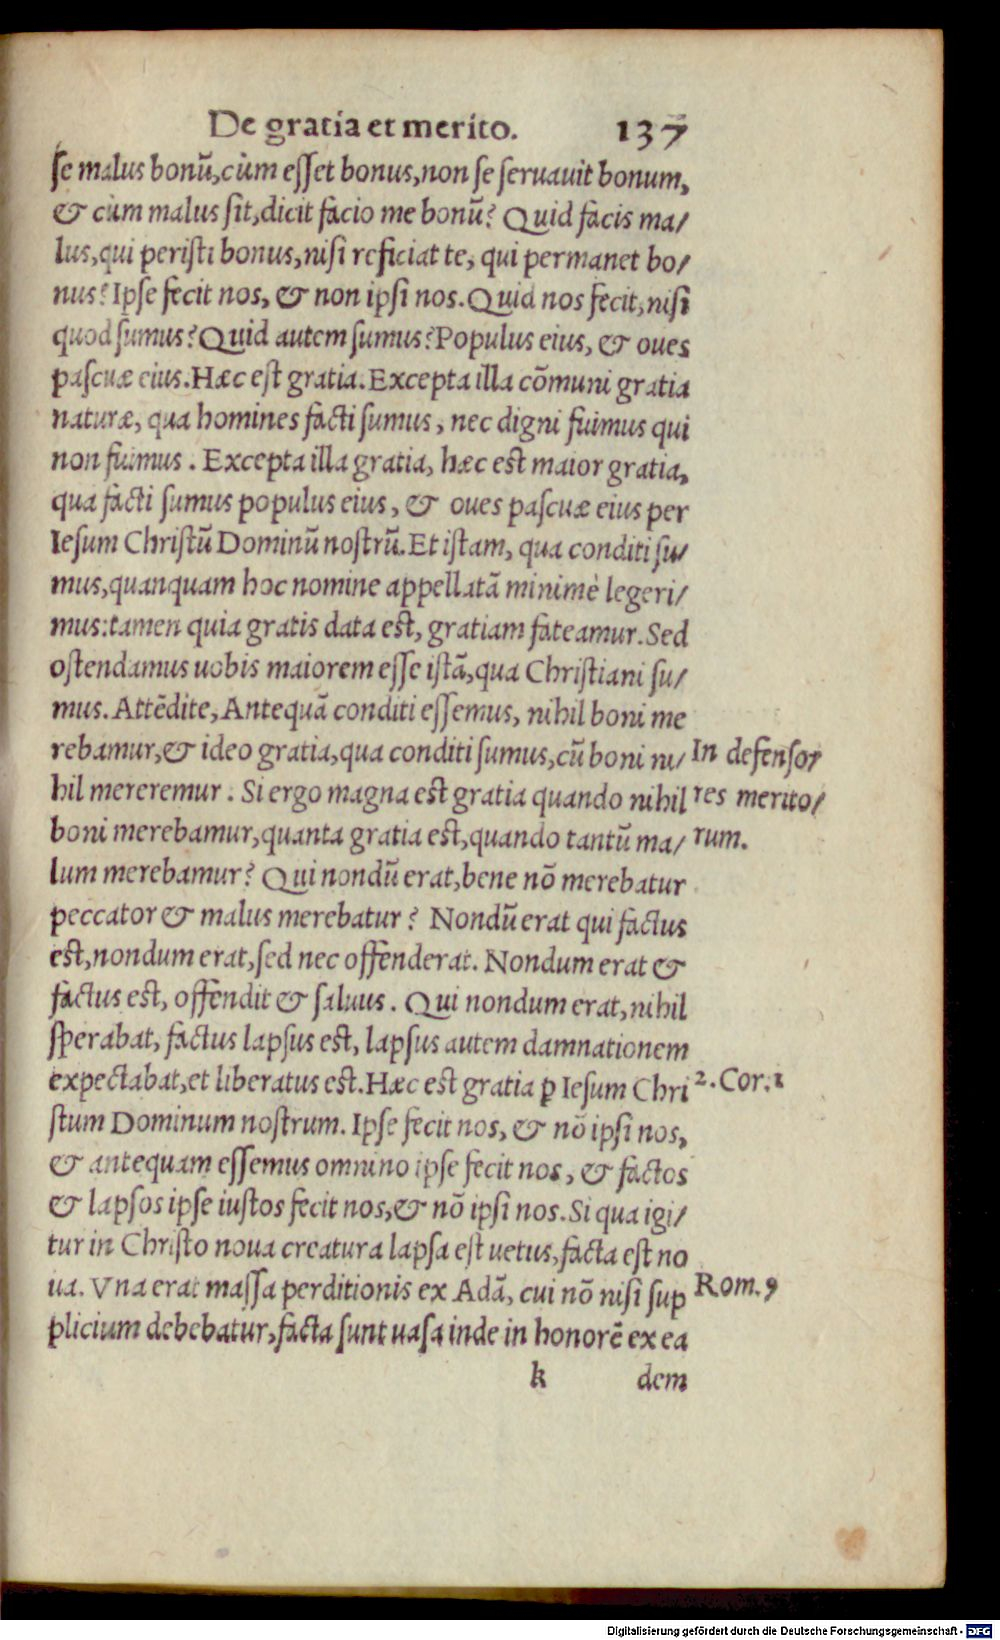 De gratia et merito. 137
ſe malus bonũ, cùm eſſet bonus, non ſe ſeruauit bonum,
& cùm malus ſit, dicit facio me bonũ? Quid facis ma/
lus, qui periſti bonus, niſi reficiat te, qui permanet bo/
nus? Ipſe fecit nos, & non ipſi nos. Quid nos fecit, niſi
quod ſumus? Quid autem ſumus? Populus eius, & oues
paſcuæ eius. Hæc eſt gratia. Excepta illa cõmuni gratia
naturæ, qua homines facti ſumus, nec digni fuimus qui
non fuimus. Excepta illa gratia, hæc est maior gratia,
qua facti ſumus populus eius, & oues paſcuæ eius per
Ieſum Chriſtũ Dominũ noſtrũ. Et iſtam, qua conditi ſu/
mus, quanquam hoc nomine appellatã minimè legeri/
mus: tamen quia gratis data est, gratiam fateamur. Sed
oſtendamus uobis maiorem eſſe iſtã, qua Chriſtiani ſu/
mus. Attẽdite, Antequã conditi eſſemus, nihil boni me
rebamur, & ideo gratia, qua conditi ſumus, cũ boni ni/
hil mereremur. Si ergo magna est gratia quando nihil
boni merebamur, quanta gratia est, quando tantũ ma/
lum merebamur? Qui nondũ erat, bene nõ merebatur
peccator & malus merebatur? Nondũ erat qui factus
est, nondum erat, ſed nec offenderat. Nondum erat &
factus est, offendit & ſaluus. Qui nondum erat, nihil
ſperabat, factus lapſus est, lapſus autem damnationem
expectabat, et liberatus est. Hæc est gratia ꝑ Ieſum Chri
ſtum Dominum noſtrum. Ipſe fecit nos, & nõ ipſi nos,
& antequam eſſemus omnino ipſe fecit nos, & factos
& lapſos ipſe iuſtos fecit nos, & nõ ipſi nos. Si qua igi/
tur in Chriſto noua creatura lapſa eſt uetus, facta est no
ua. Vna erat maſſa perditionis ex Adã, cui nõ niſi ſup
plicium debebatur, facta ſunt uaſa inde in honorẽ ex ea
k dem
In defenſor
res merito/
rum.
2. Cor. 1
Rom. 9
Digitalisierung gefördert durch die Deutsche Forschungsgemeinschaft - DFG